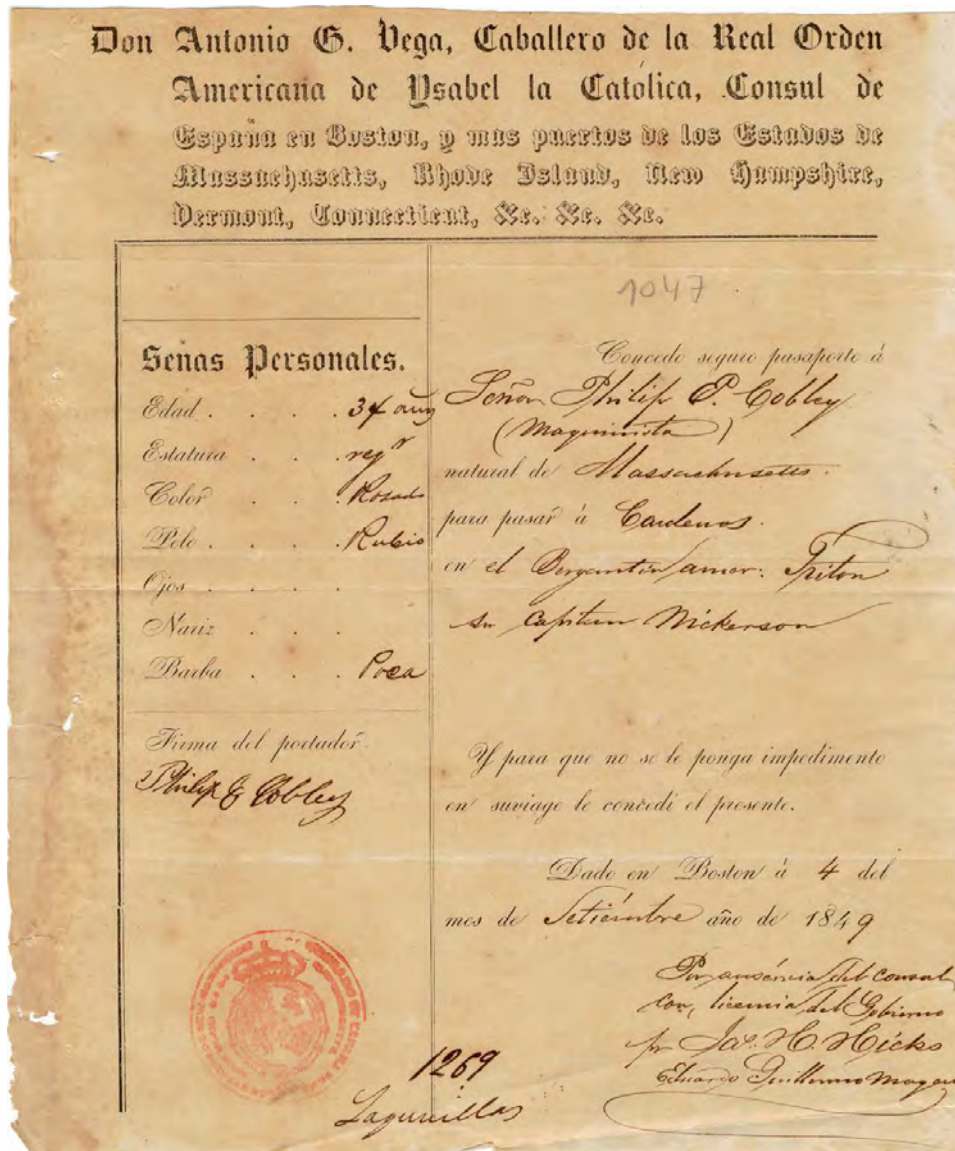 Don Antonio G. Vega, Caballero de la Real Orden
Americana de Ysabel la Católica, Consul de
España en Boston, y mas puertos de los Estados de
Massachusetts, Rhode Island, New Hampshire,
Vermont, Connecticut, &c. &c. &c.
1047
Señas Personales.
Edad . . . . 34 años
Estatura . . regr
Color . . . Rosado
Pelo . . . . Rubio
Ojos . . . .
Nariz . . . .
Barba . . . Poca
Firma del portador.
Philip G Cobley
Concedo seguro pasaporte á
Señor Philip P. Cobley
(Maquinista)
natural de Massachusetts.
para pasar á Cardenas.
en el Bergantin amer: Triton
su capitan Nickerson
Y para que no se le ponga impedimento
en suviage le concedi el presente.
Dado en Boston á 4 del
mes de Setiembre año de 1849
Por ausencia del consul
con licencia del Gobierno
pr Jas. H. Hicks
Eduardo Guillermo
1269
Lagunillas